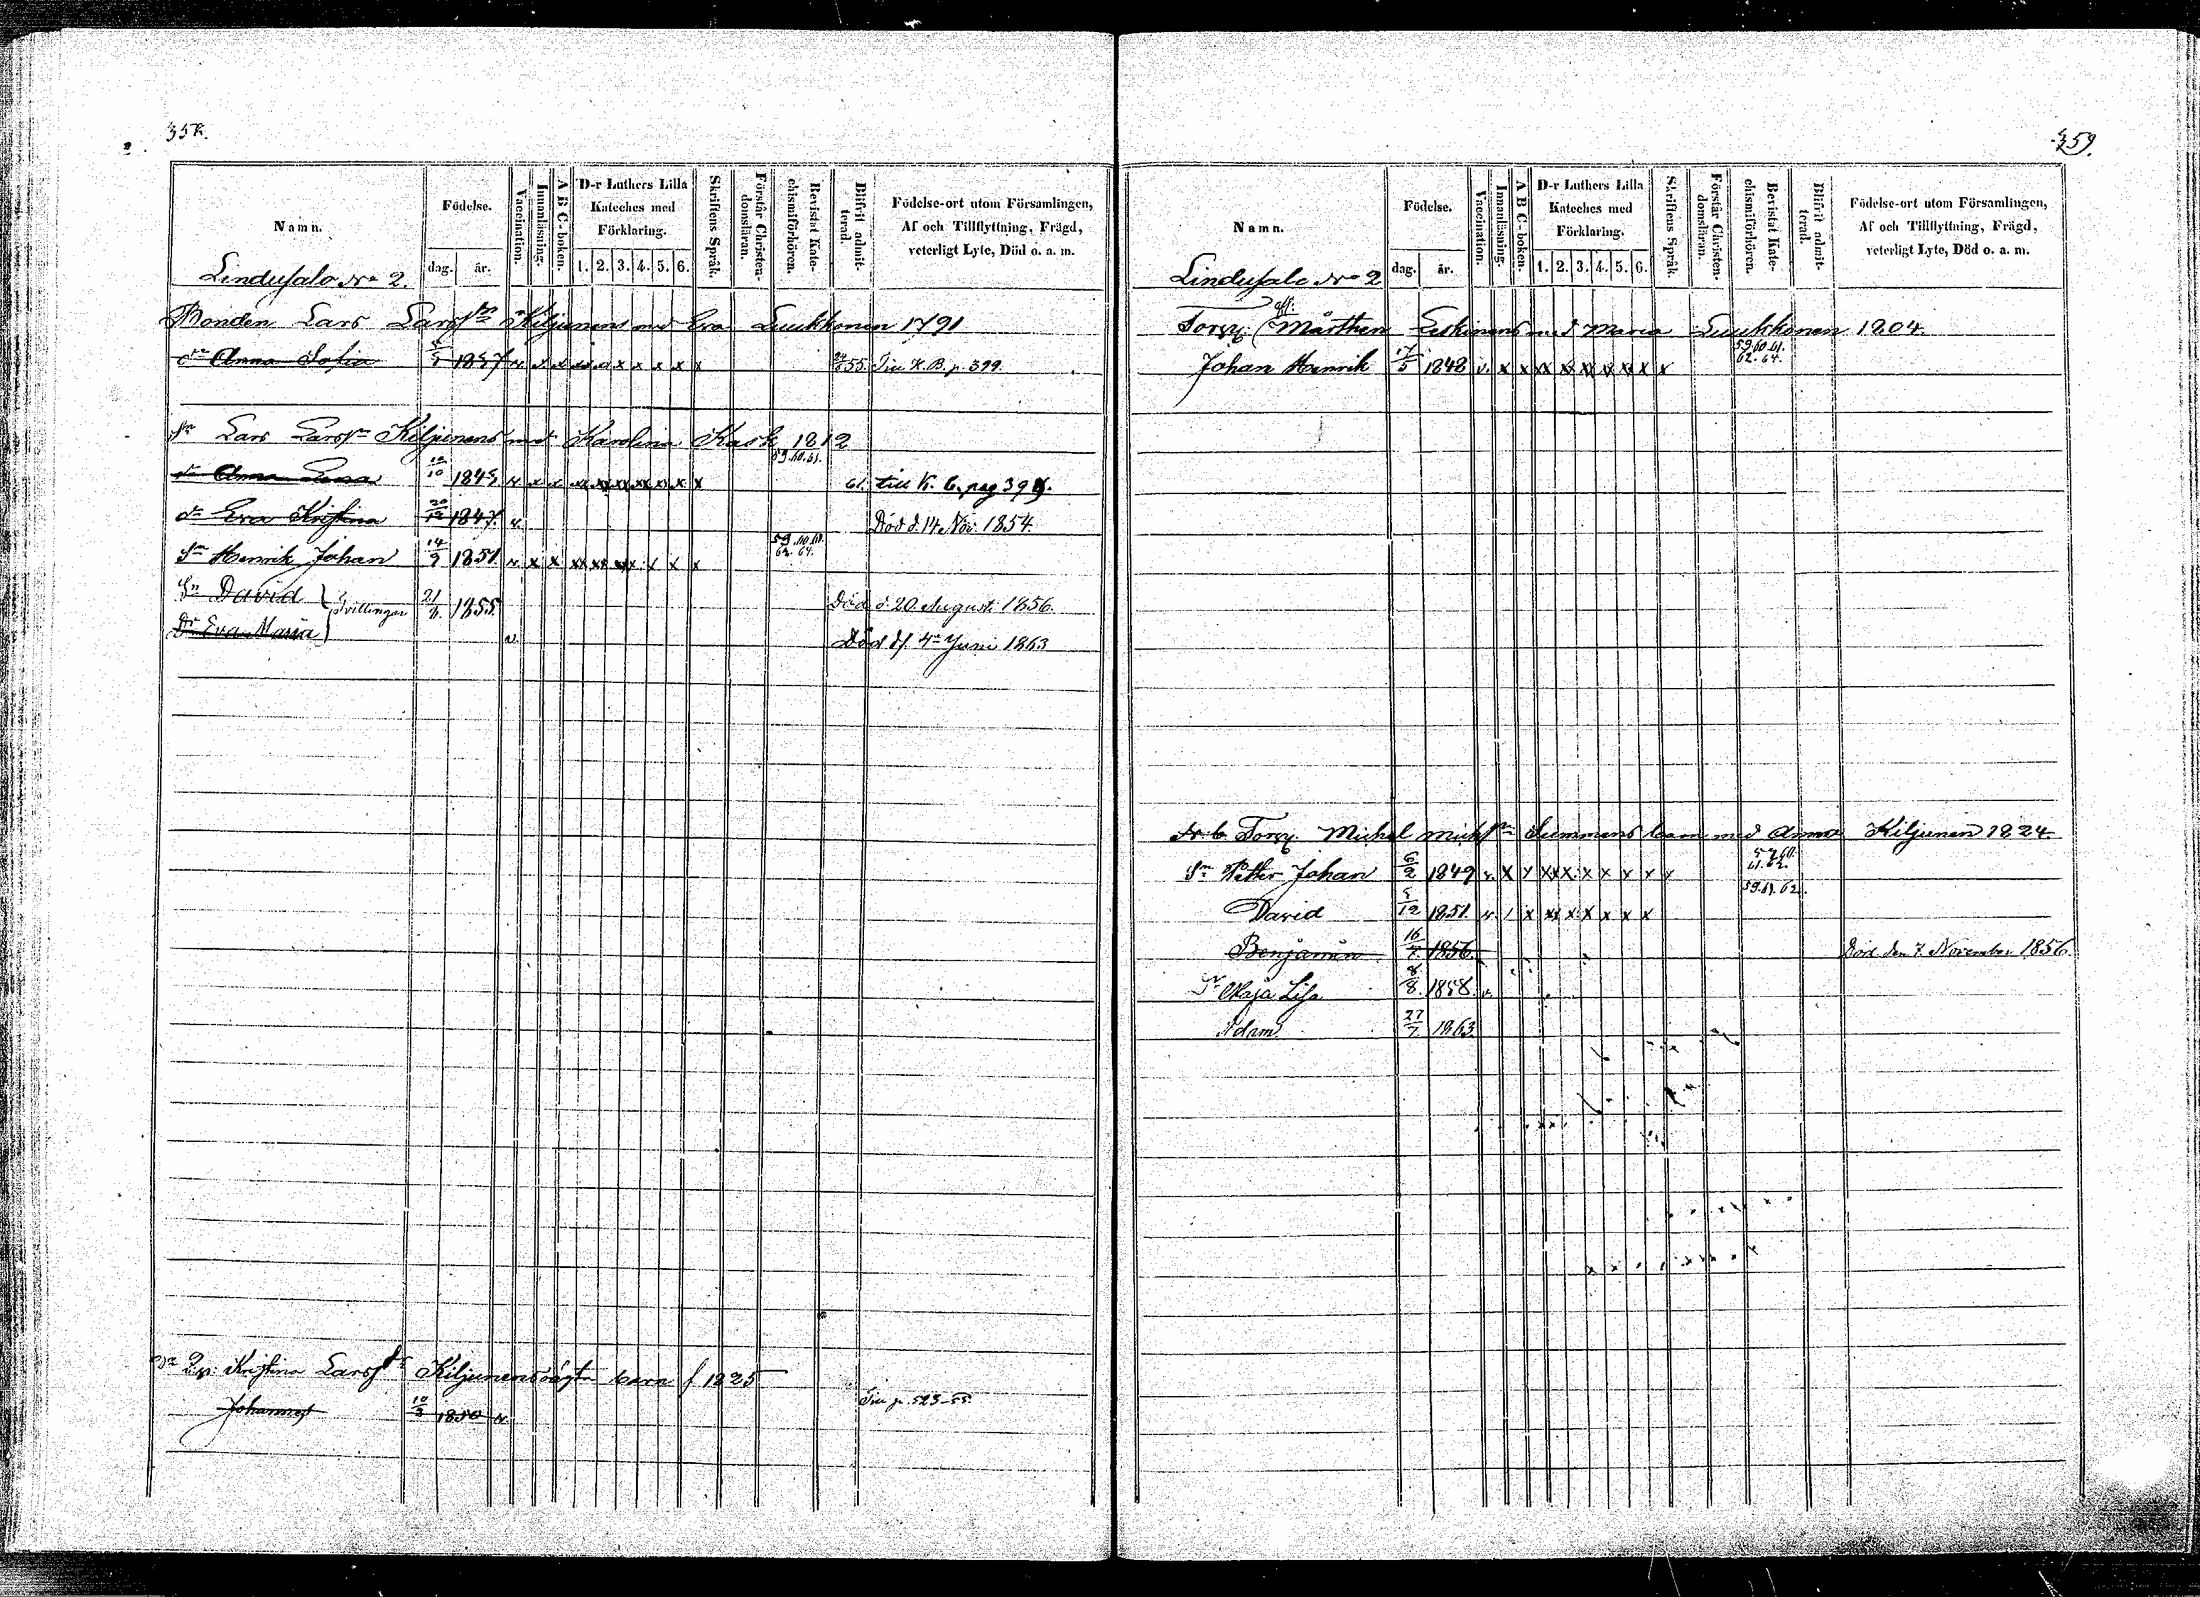 358.
Namn.
Födelse.
dag. år.
Vaccination.
Innanläsning.
A B C-boken.
D-r Luthers Lilla
Kateches med
Förklaring.
1. 2. 3. 4. 5. 6.
Skriftens Språk.
Förstår Christen-
domsläran.
Bevistat Kate-
chismiförhören.
Blifvit admit-
terad.
Födelse-ort utom Församlingen,
Af och Tillflyttning, Frägd,
veterligt Lyte, Död o. a. m.
Lindusalo No 2.
Bonden Lars Larss:n Kiljunens med Eva Luukkonen 1791
dr Anna Sofia 1837 v x x x x x x x x 55. Till K. B. p. 399.
Sn Lars Larss:n Kiljunens med Karolina Kask 1812
59.60.61.
dr Anna Lena 10 1845 v x x xx xx xx xx x x x 61. till K. B. pag 399.
dr Eva Kristina 20/12 1847. v. Död d. 14 Nov. 1854.
Sn Henrik Johan 14/9 1851 v x x xx xx xx x x x 59.60.61. 62. 64.
Sn David } Tvillingar 21/8. 1855. Död d. 20. Augusti 1856.
Dr Eva Maria v. Död d/. 4n Juni 1863
Kristina Larsdr Kiljunens oägta barn f 1825
Johannes 1850 v. Till p. 523-55.
359.
Namn.
Födelse.
dag. år.
Vaccination.
Innanläsning.
A B C-boken.
D-r Luthers Lilla
Kateches med
Förklaring.
1. 2. 3. 4. 5. 6.
Skriftens Språk.
Förstår Christen-
domsläran.
Bevistat Kate-
chismiförhören.
Blifvit admit-
terad.
Födelse-ort utom Församlingen,
Af och Tillflyttning, Frägd,
veterligt Lyte, Död o. a. m.
Lindusalo No 2
Torp. Mårthen Eskinens med Maria Luukkonen 1804.
Johan Henrik 17/5 1848 v. x x xx xx xx xx xx x x 59.60.61. 62. 64.
Torp. Michel Michss:n Summens barn med Anna Kiljunen 1824.
Sn Petter Johan 6/2 1849 v. x x xxx x x x x x 57.60. 61.62.
David 5/12 1851. v. / x xx x x x x x 59.61.62.
Benjamin 16/7. 1856. Död den 7. November 1856.
Dr Maja Lisa 8/8. 1858. v.
Adam 27/7. 1863.